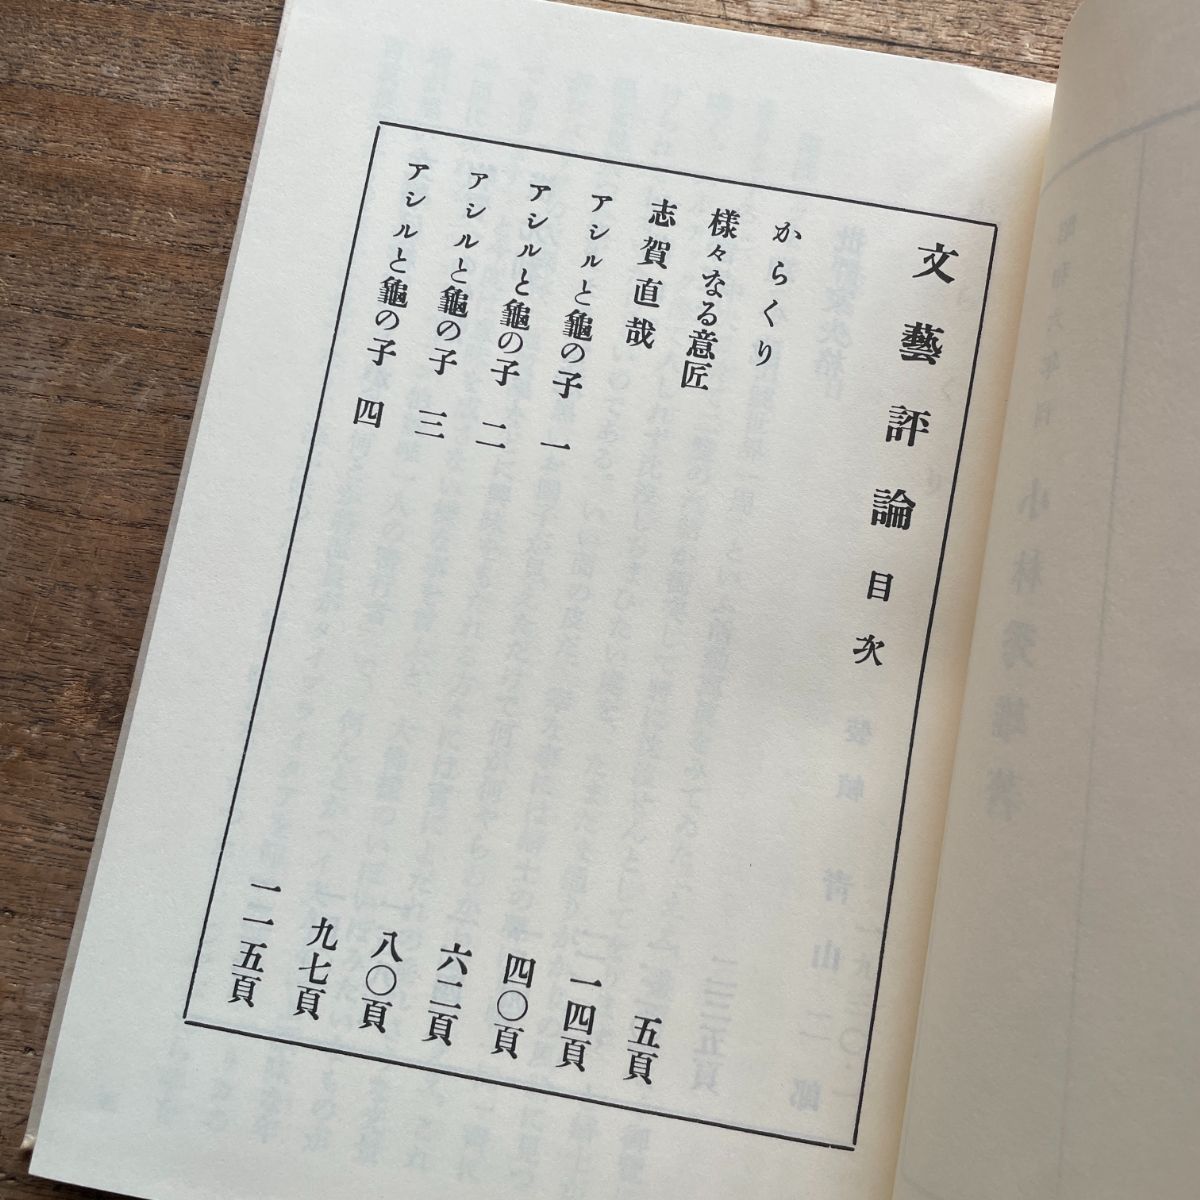 文藝評論 目次
からくり 五頁
様々なる意匠 一四頁
志賀直哉 四〇頁
アシルと龜の子 一 六二頁
アシルと龜の子 二 八〇頁
アシルと龜の子 三 九七頁
アシルと龜の子 四 一一五頁